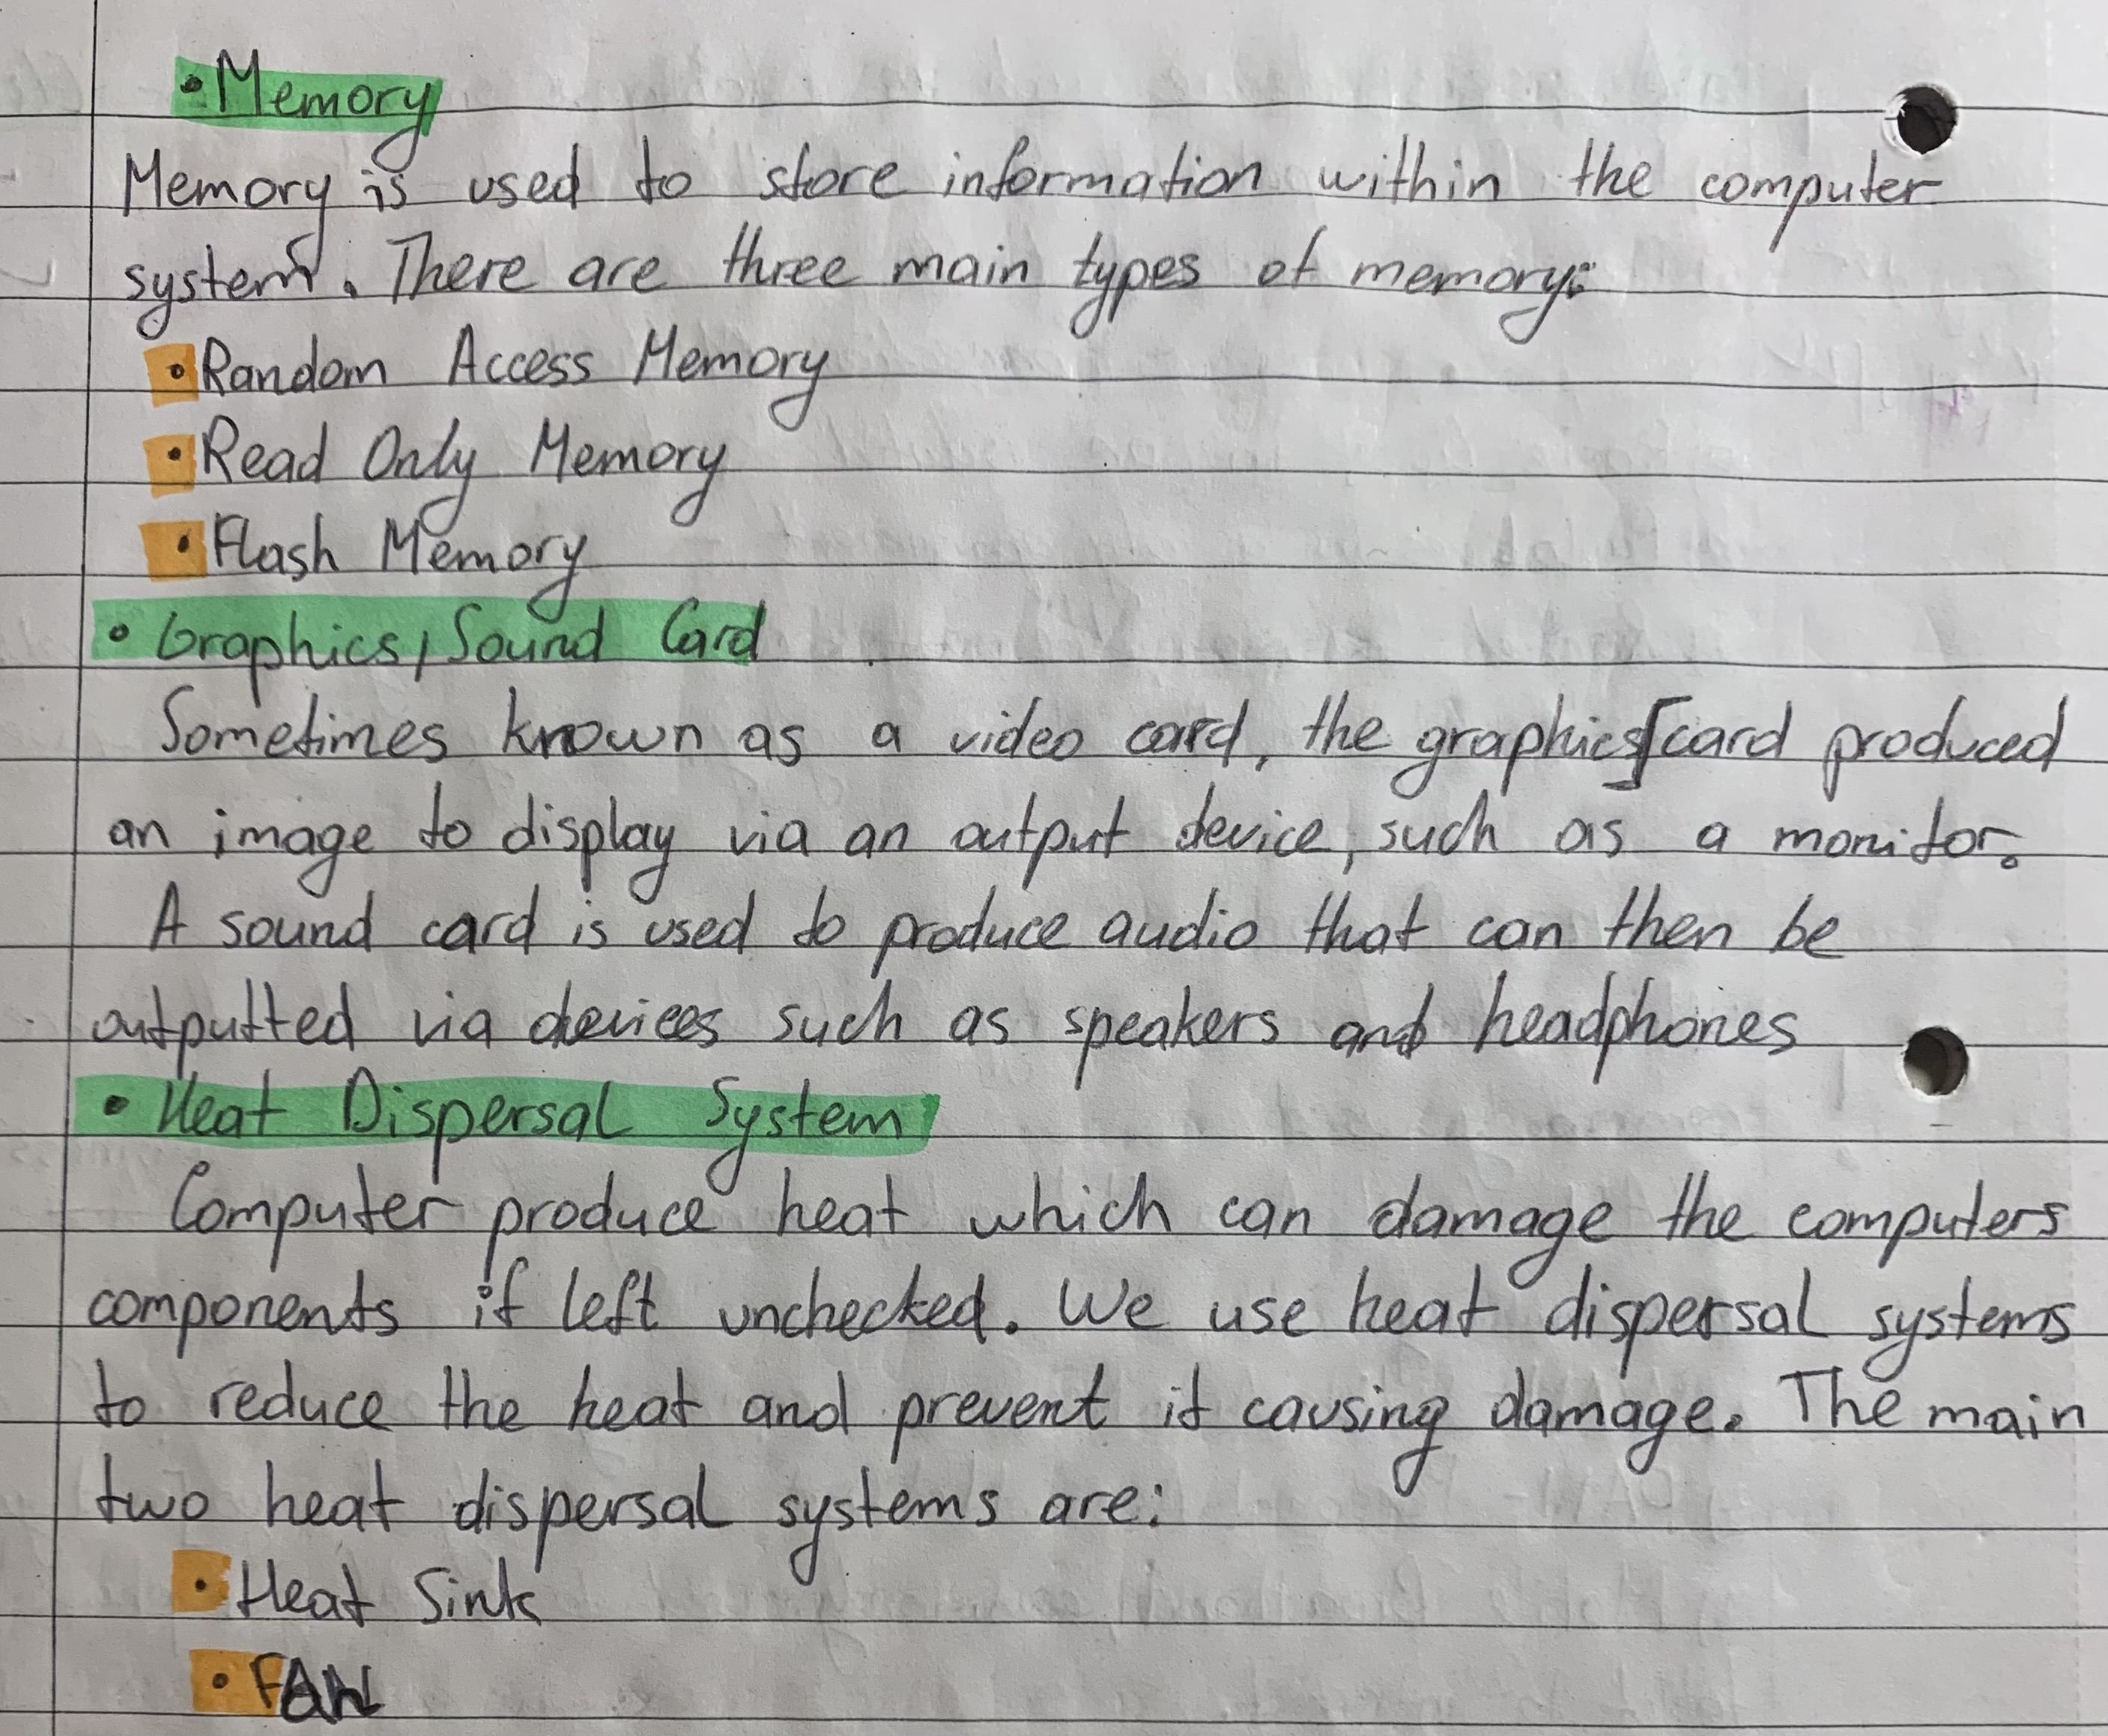 • Memory
Memory is used to store information within the computer
system. There are three main types of memory:
• Random Access Memory
• Read Only Memory
• Flash Memory
• Graphics/Sound Card
Sometimes known as a video card, the graphics card produced
an image to display via an output device, such as a monitor.
A sound card is used to produce audio that can then be
outputted via devices such as speakers and headphones
• Heat Dispersal System
Computer produce heat which can damage the computers
components if left unchecked. We use heat dispersal systems
to reduce the heat and prevent it causing damage. The main
two heat dispersal systems are:
• Heat Sink
• FAN